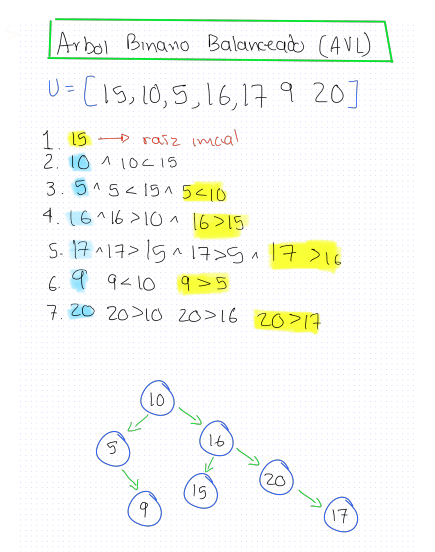 Arbol Binario Balanceado (AVL)
U = [15, 10, 5, 16, 17 9 20]
1. 15 → raiz inicial
2. 10 ^ 10 < 15
3. 5 ^ 5 < 15 ^ 5 < 10
4. 16 ^ 16 > 10 ^ 16 > 15
5. 17 ^ 17 > 15 ^ 17 > 5 ^ 17 > 16
6. 9 9 < 10 9 > 5
7. 20 20 > 10 20 > 16 20 > 17
10
5 16
9 15 20 17